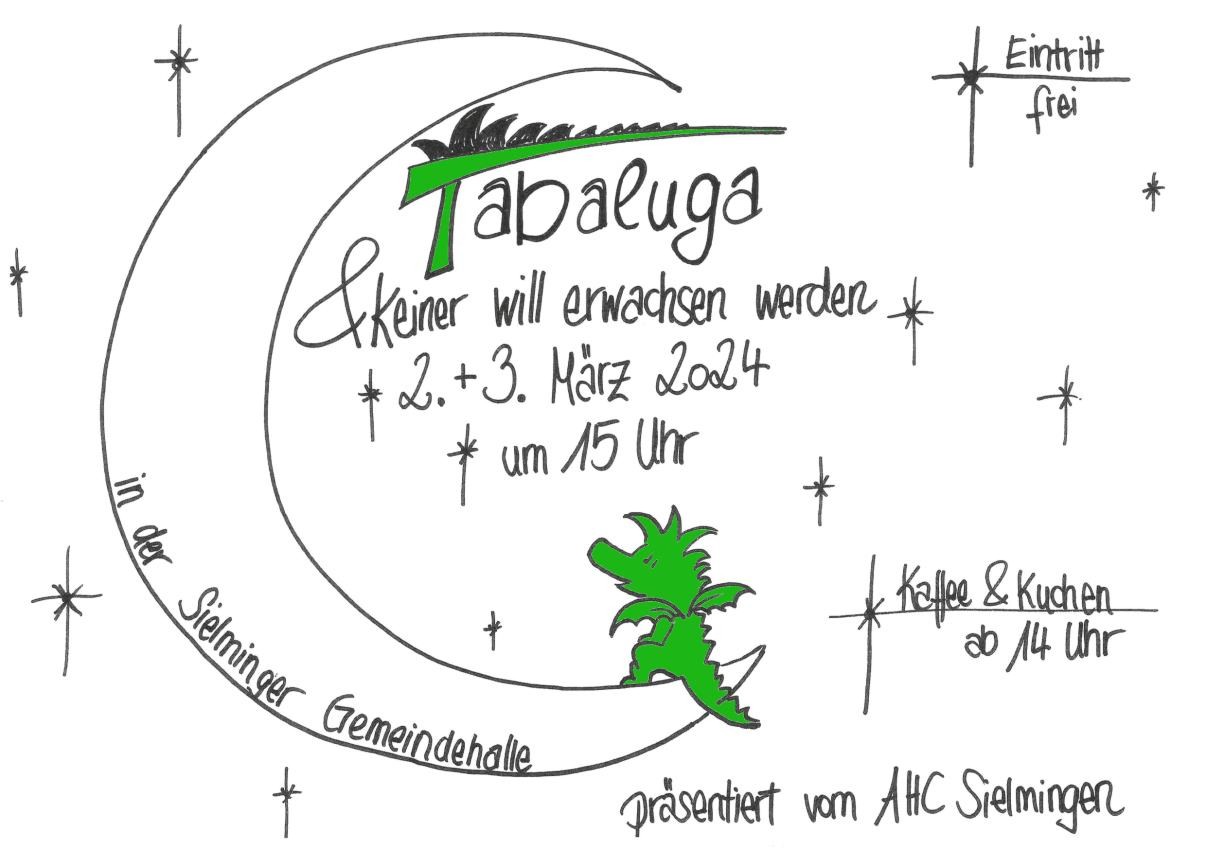 Eintritt
frei
Tabaluga
& Keiner will erwachsen werden
2. + 3. März 2024
um 15 Uhr
in der Sielminger Gemeindehalle
Kaffee & Kuchen
ab 14 Uhr
präsentiert vom AHC Sielmingen